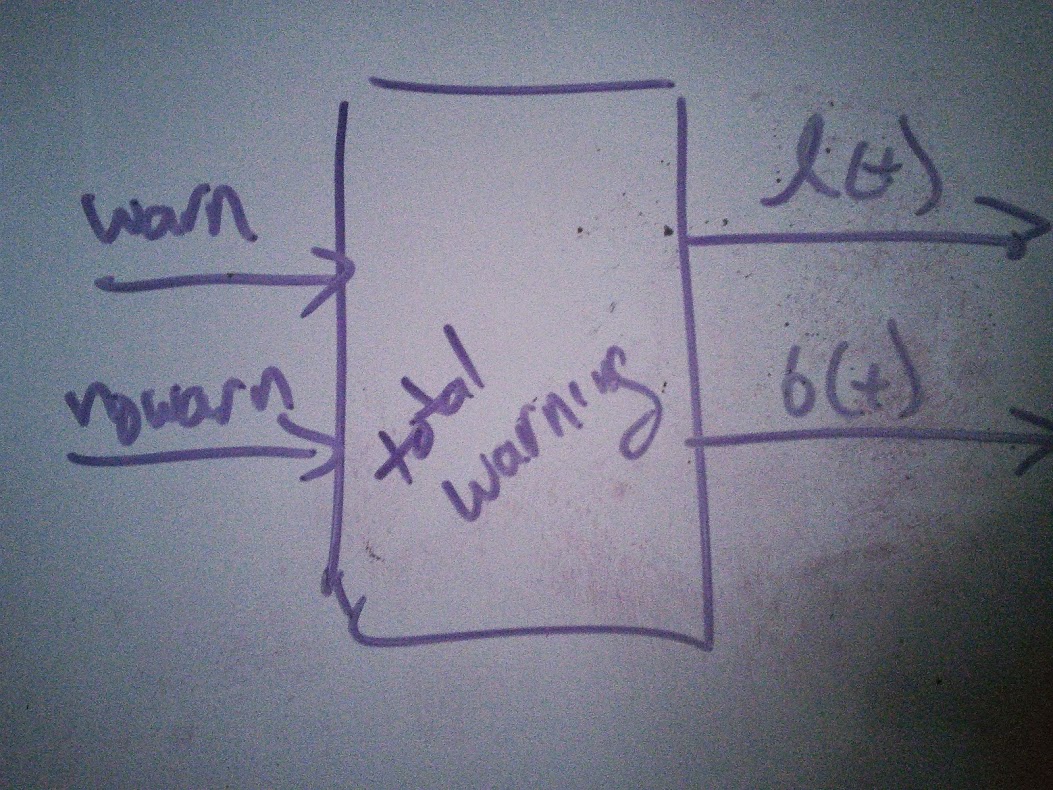 warn
nowarn
total
warning
l(t)
b(t)